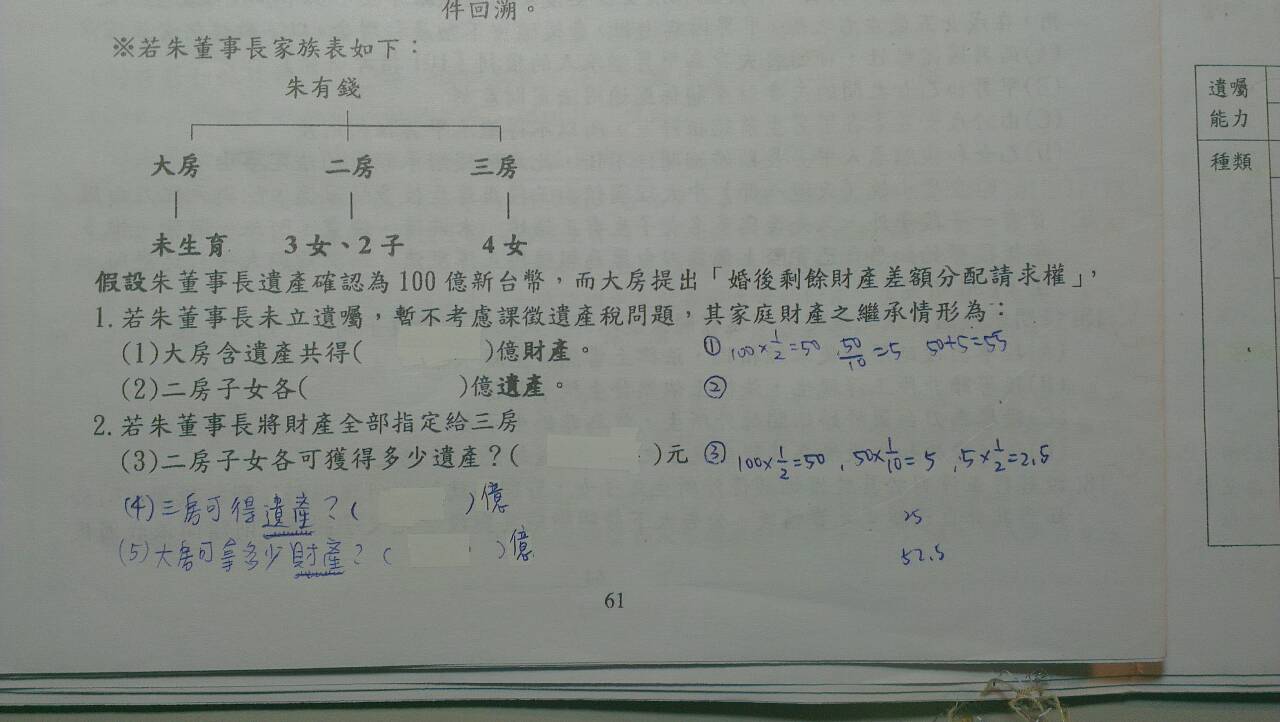 件回溯。
※若朱董事長家族表如下：
朱有錢
大房 二房 三房
未生育 3女、2子 4女
假設朱董事長遺產確認為100億新台幣，而大房提出「婚後剩餘財產差額分配請求權」，
1.若朱董事長未立遺囑，暫不考慮課徵遺產稅問題，其家庭財產之繼承情形為：
(1)大房含遺產共得( )億財產。 ① 100×1/2=50 50/10=5 50+5=55
(2)二房子女各( )億遺產。 ②
2.若朱董事長將財產全部指定給三房
(3)二房子女各可獲得多少遺產？( )元 ③ 100×1/2=50，50×1/10=5，5×1/2=2.5
(4)三房可得遺產？( )億 25
(5)大房可拿多少財產？( )億 52.5
61
遺囑
能力
種類